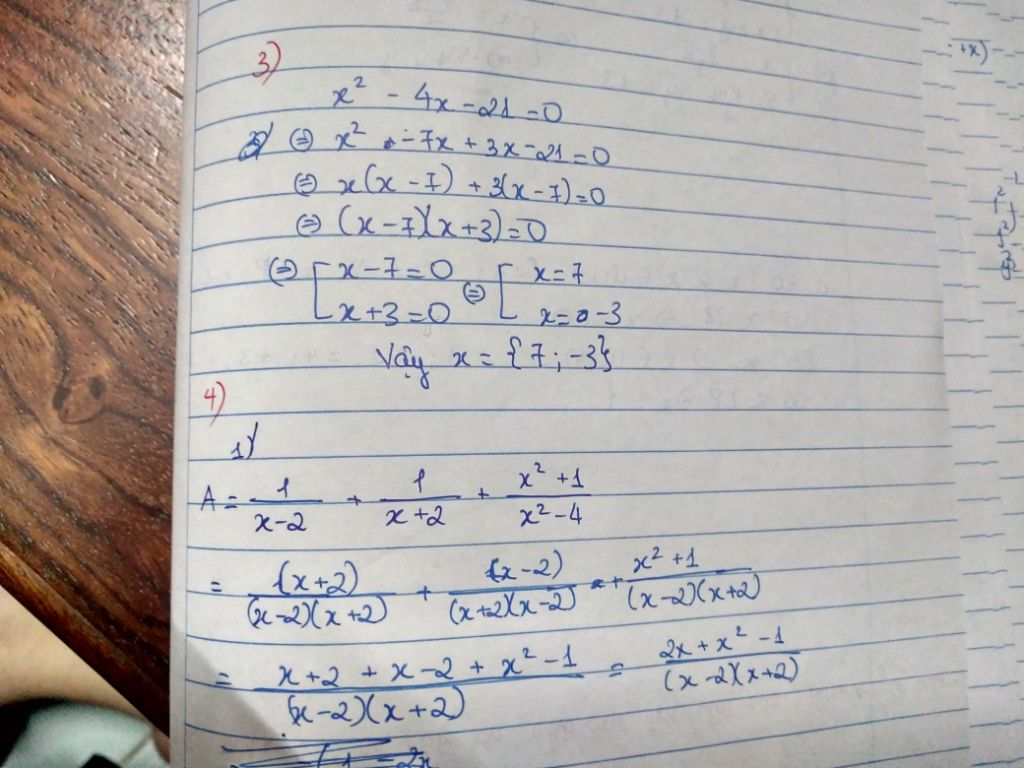 3)
x² - 4x - 21 = 0
⇔ x² - 7x + 3x - 21 = 0
⇔ x(x - 7) + 3(x - 7) = 0
⇔ (x - 7)(x + 3) = 0
⇔ [ x - 7 = 0 ⇔ [ x = 7
x + 3 = 0 x = -3
Vậy x = {7; -3}
4)
1)
A = 1/(x-2) + 1/(x+2) + (x² + 1)/(x² - 4)
= (x+2)/((x-2)(x+2)) + (x-2)/((x+2)(x-2)) + (x² + 1)/((x-2)(x+2))
= (x+2 + x-2 + x² - 1)/((x-2)(x+2)) = (2x + x² - 1)/((x-2)(x+2))